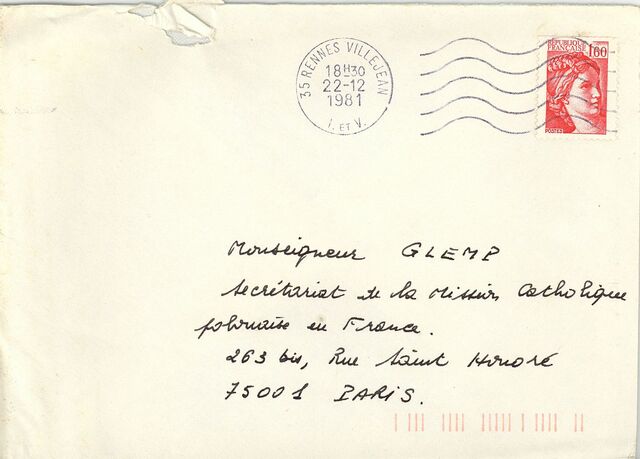 35 RENNES VILLEJEAN
18H30
22-12
1981
I. ET V.
REPUBLIQUE
FRANÇAISE
1,60
POSTES
Monseigneur GLEMP
Secrétariat de la Mission Catholique
polonaise en France.
263 bis, Rue Saint Honoré
75001 PARIS.